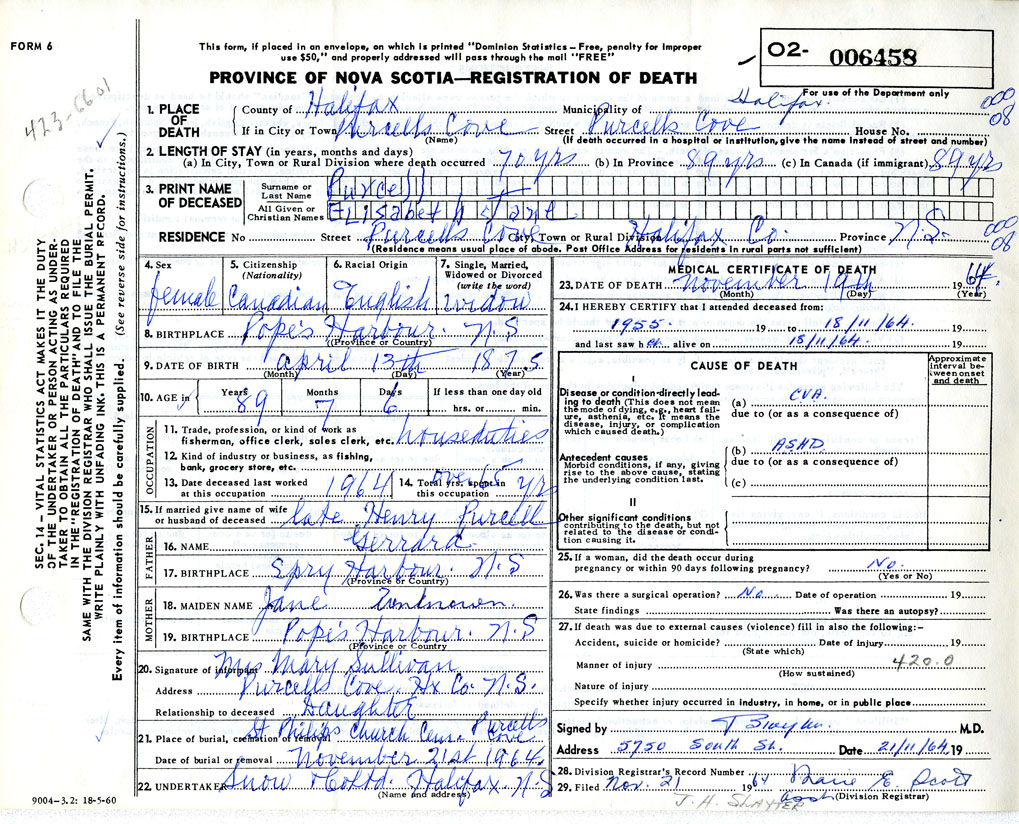 FORM 6
This form, if placed in an envelope, on which is printed "Dominion Statistics – Free, penalty for improper
use $50," and properly addressed will pass through the mail "FREE"
PROVINCE OF NOVA SCOTIA—REGISTRATION OF DEATH
O2- 006458
For use of the Department only
423-6601
000
08
1. PLACE OF DEATH
County of Halifax Municipality of Halifax.
If in City or Town Purcells Cove Street Purcells Cove House No.
(Name) (If death occurred in a hospital or institution, give the name instead of street and number)
2. LENGTH OF STAY (in years, months and days)
(a) In City, Town or Rural Division where death occurred 70 yrs (b) In Province 89 yrs (c) In Canada (if immigrant) 89 yrs
3. PRINT NAME OF DECEASED
Surname or Last Name Purcell
All Given or Christian Names Elisabeth Jane
RESIDENCE No Street Purcells Cove City, Town or Rural Division Halifax Co. Province N.S.
(Residence means usual place of abode. Post Office Address for residents in rural parts not sufficient)
000
08
4. Sex female
5. Citizenship (Nationality) Canadian
6. Racial Origin English
7. Single, Married, Widowed or Divorced (write the word) widow
8. BIRTHPLACE Pope's Harbour. N.S
(Province or Country)
9. DATE OF BIRTH april 13th 1875
(Month) (Day) (Year)
10. AGE in Years 89 Months 7 Days 6 If less than one day old hrs. or min.
OCCUPATION
11. Trade, profession, or kind of work as fisherman, office clerk, sales clerk, etc. houseduties
12. Kind of industry or business, as fishing, bank, grocery store, etc.
13. Date deceased last worked at this occupation 1964
14. Total yrs. spent in this occupation over 65 yrs
15. If married give name of wife or husband of deceased late Henry Purcell
FATHER
16. NAME Gerrard
17. BIRTHPLACE Spry Harbour. N.S
(Province or Country)
MOTHER
18. MAIDEN NAME Jane Unknown.
19. BIRTHPLACE Pope's Harbour. N.S
(Province or Country)
20. Signature of informant Mrs Mary Sullivan
Address Purcells Cove. Hx Co. N.S.
Relationship to deceased Daughter
21. Place of burial, cremation or removal St Philips Church Cem. Purcells Cove
Date of burial or removal November 21st 1964.
22. UNDERTAKER Snow & Co Ltd. Halifax N.S
(Name and address)
9004-3.2: 18-5-60
MEDICAL CERTIFICATE OF DEATH
23. DATE OF DEATH November 19th 1964.
(Month) (Day) (Year)
24. I HEREBY CERTIFY that I attended deceased from:
1955. 19 to 18/11/64. 19
and last saw her alive on 18/11/64. 19
CAUSE OF DEATH
Approximate interval between onset and death
I
Disease or condition directly leading to death (This does not mean the mode of dying, e.g., heart failure, asthenia, etc. It means the disease, injury, or complication which caused death.)
(a) CVA.
due to (or as a consequence of)
Antecedent causes
Morbid conditions, if any, giving rise to the above cause, stating the underlying condition last.
(b) ASHD.
due to (or as a consequence of)
(c)
II
Other significant conditions contributing to the death, but not related to the disease or condition causing it.
25. If a woman, did the death occur during pregnancy or within 90 days following pregnancy? No.
(Yes or No)
26. Was there a surgical operation? No. Date of operation 19
State findings Was there an autopsy?
27. If death was due to external causes (violence) fill in also the following:-
Accident, suicide or homicide? Date of injury 19
(State which)
Manner of injury 420.0
(How sustained)
Nature of injury
Specify whether injury occurred in industry, in home, or in public place
Signed by M.D.
Address 5750 South St. Date 21/11/64, 19
28. Division Registrar's Record Number
29. Filed Nov. 21 1964 Marie E. Scott
asst (Division Registrar)
J. H. SLAYTER
SEC. 14 – VITAL STATISTICS ACT MAKES IT THE DUTY
OF THE UNDERTAKER OR PERSON ACTING AS UNDER-
TAKER TO OBTAIN ALL THE PARTICULARS REQUIRED
IN THE "REGISTRATION OF DEATH" AND TO FILE THE
SAME WITH THE DIVISION REGISTRAR WHO SHALL ISSUE THE BURIAL PERMIT.
WRITE PLAINLY WITH UNFADING INK. THIS IS A PERMANENT RECORD.
Every item of information should be carefully supplied. (See reverse side for instructions.)